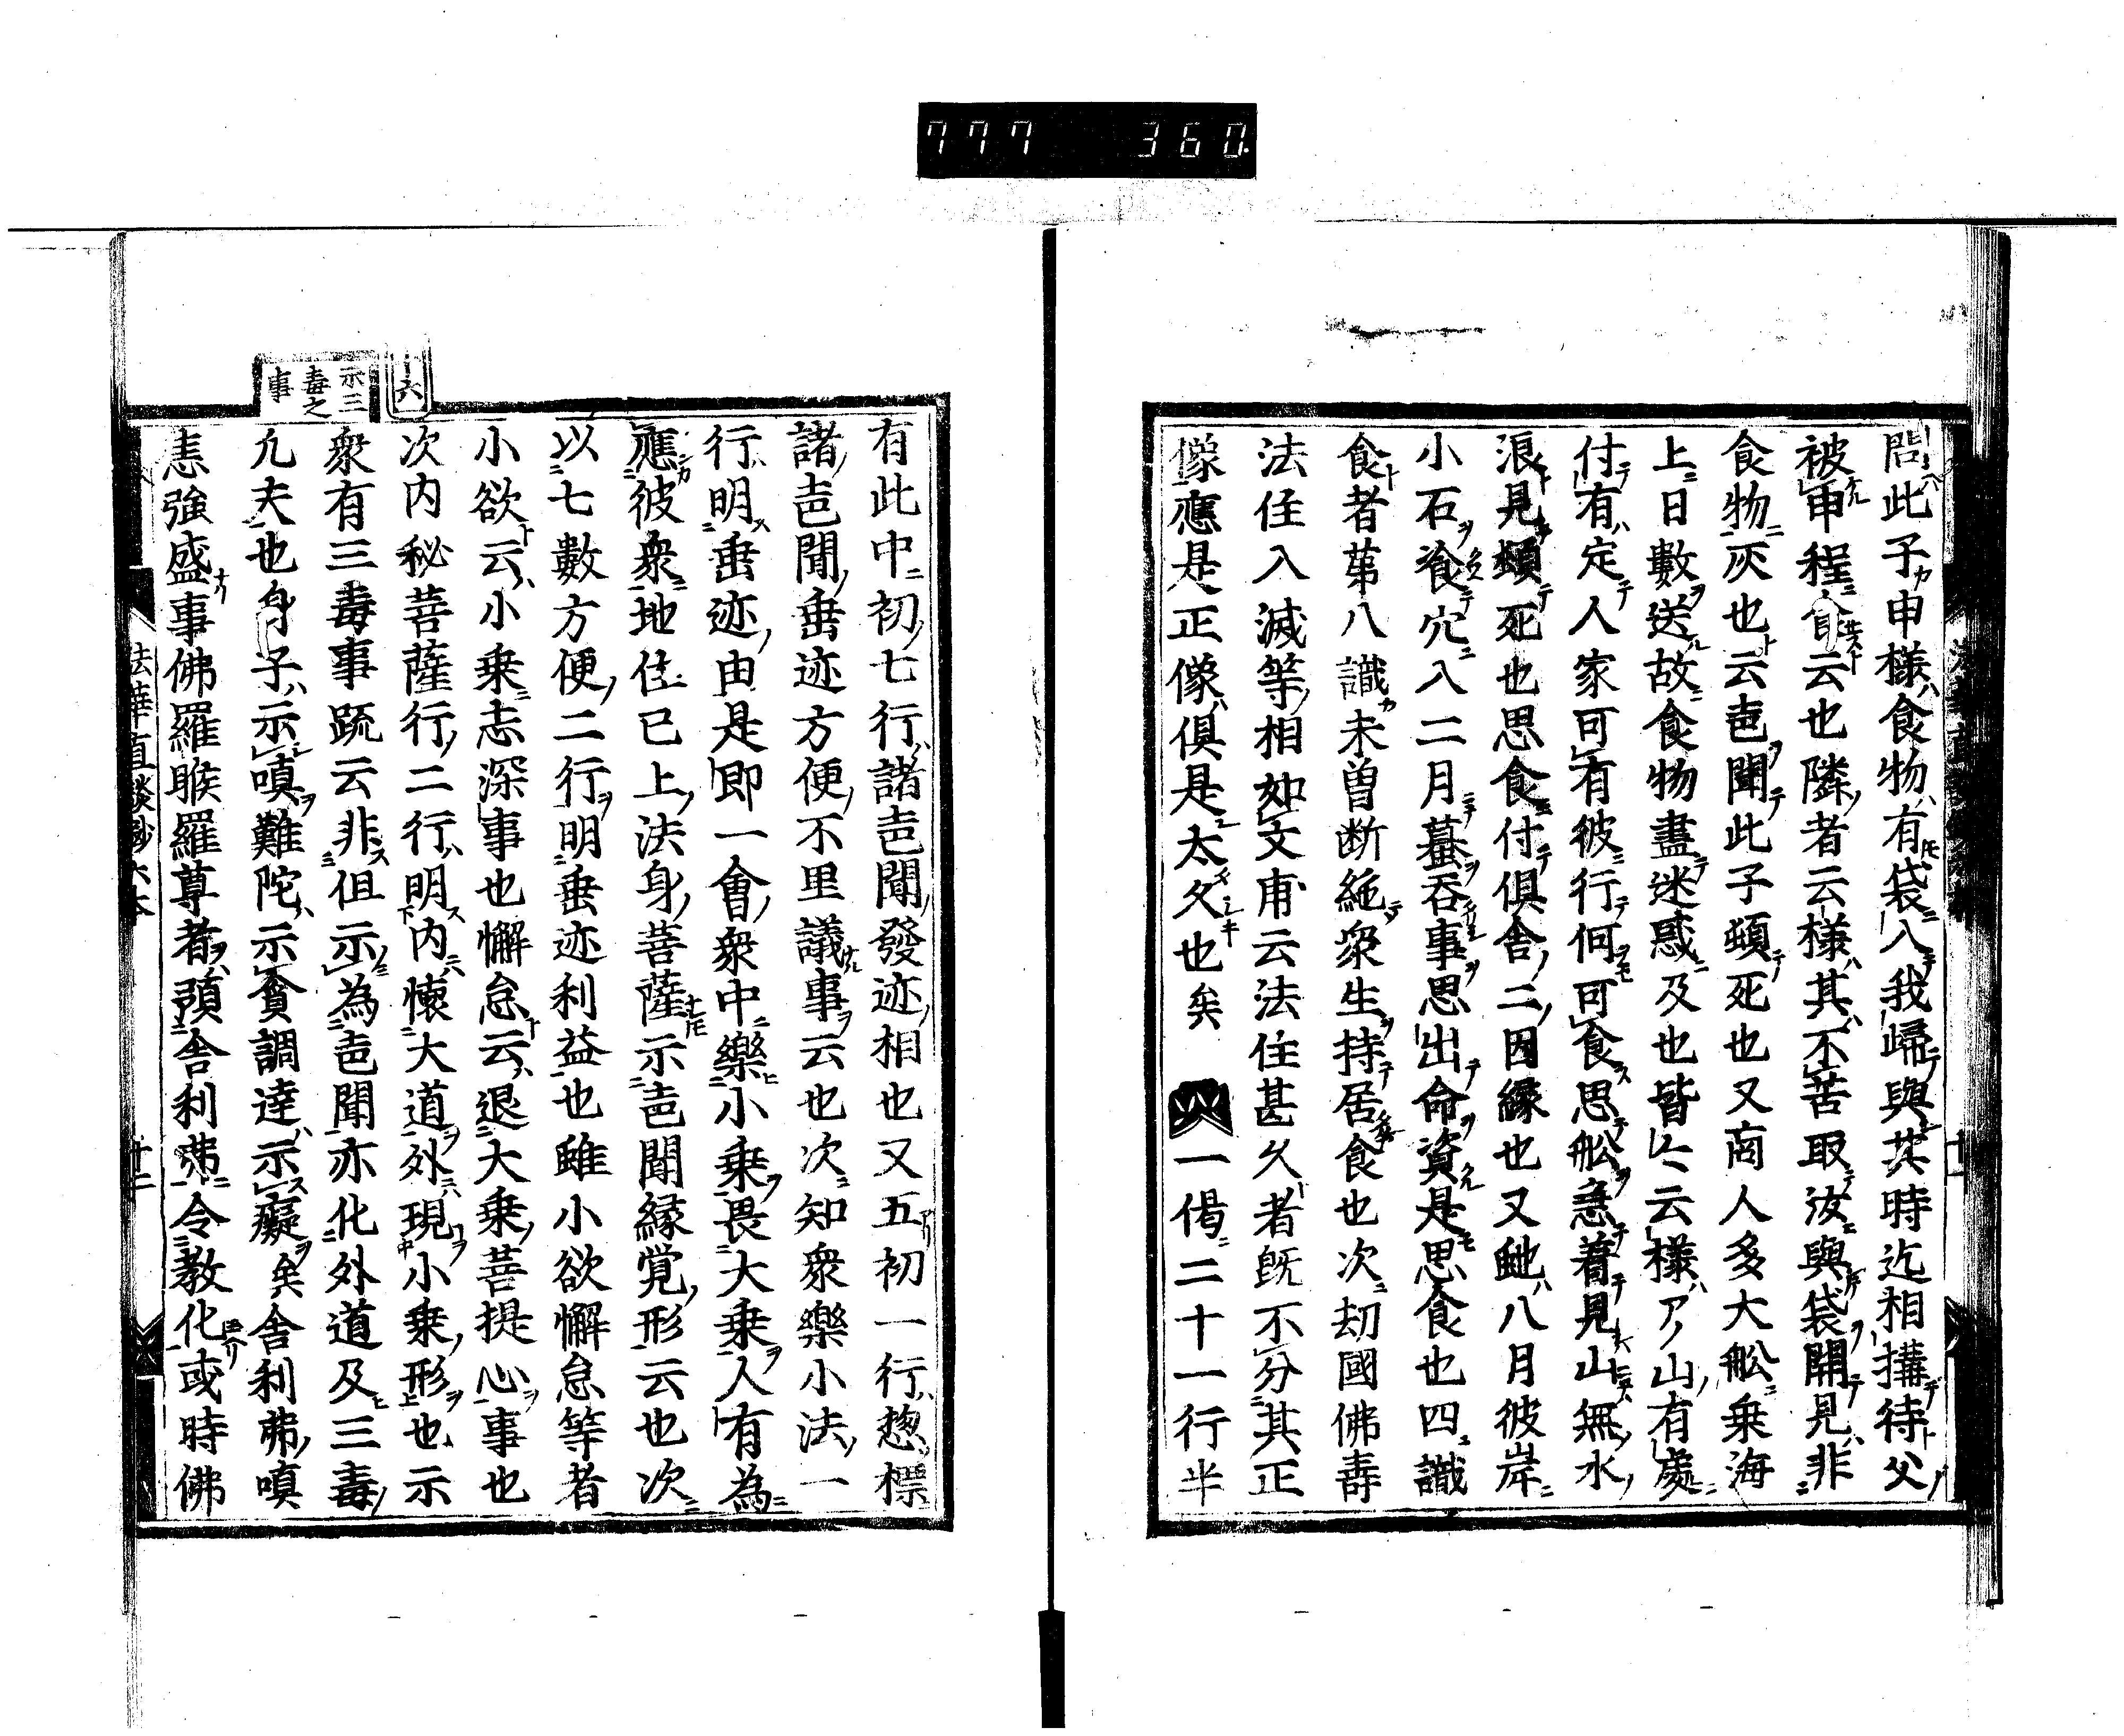 777 360
問此子申様食物有袋入我歸與其時迄相構待父
被申程食云也隣者云様其不苦取汝與袋開見非
食物灰也云𦖒聞此子頓死也又商人多大舩乗海
上日數送故食物盡迷惑及也皆〻云様アノ山有處
付有定人家可有彼行何可食思舩急着見山無水
浪見頓死也思食付俱舎二因縁也又虵八月彼岸
小石飡穴入二月蟇呑事思出命資是思食也四識
食者苐八識未曽断絶衆生持居食也次刧國佛壽
法住入滅等相如文甫云法住甚久者既不分其正
像應是正像俱是太久也矣 一偈二十一行半
有此中初七行諸声聞發迹相也又五初一行惣標
諸声聞垂迹方便不思議事云也次知衆樂小法一
行明垂迹由是即一會衆中樂小乗畏大乗人有為
應彼衆地住已上法身菩薩示声聞縁覚形云也次
以七數方便二行明垂迹利益也雖小欲懈怠等者
小欲云小乗志深事也懈怠云退大乗菩提心事也
次内秘菩薩行二行明内懐大道外現小乗形也示
衆有三毒事䟽云非但示為声聞亦化外道及三毒
凢夫也身子示嗔難陀示貪調達示癡矣舎利弗嗔
恚強盛事佛羅睺羅尊者預舎利弗令教化或時佛
十六
示三毒之事
法華直談鈔六本
十二